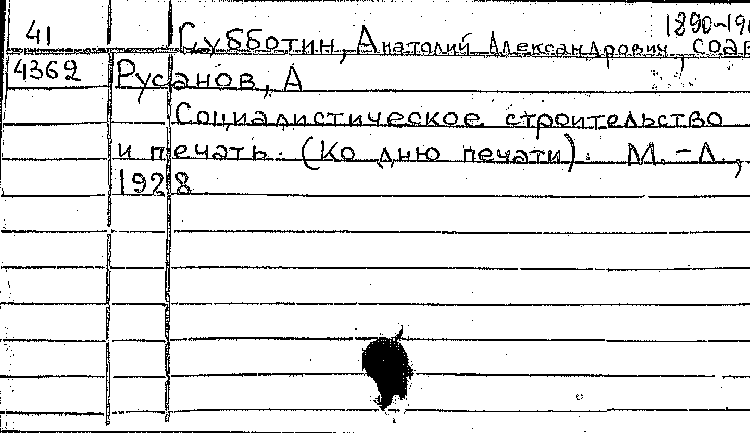 1890-19
41 Субботин, Анатолий Александрович, соав
4362 Русанов, А
Социалистическое строительство
и печать. (Ко дню печати). М.-Л.,
1928